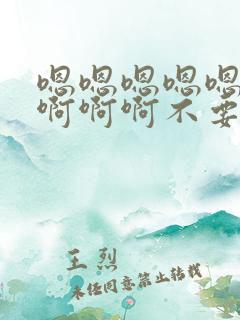 嗯嗯嗯嗯嗯
啊啊啊不要
王烈
未经同意禁止转载